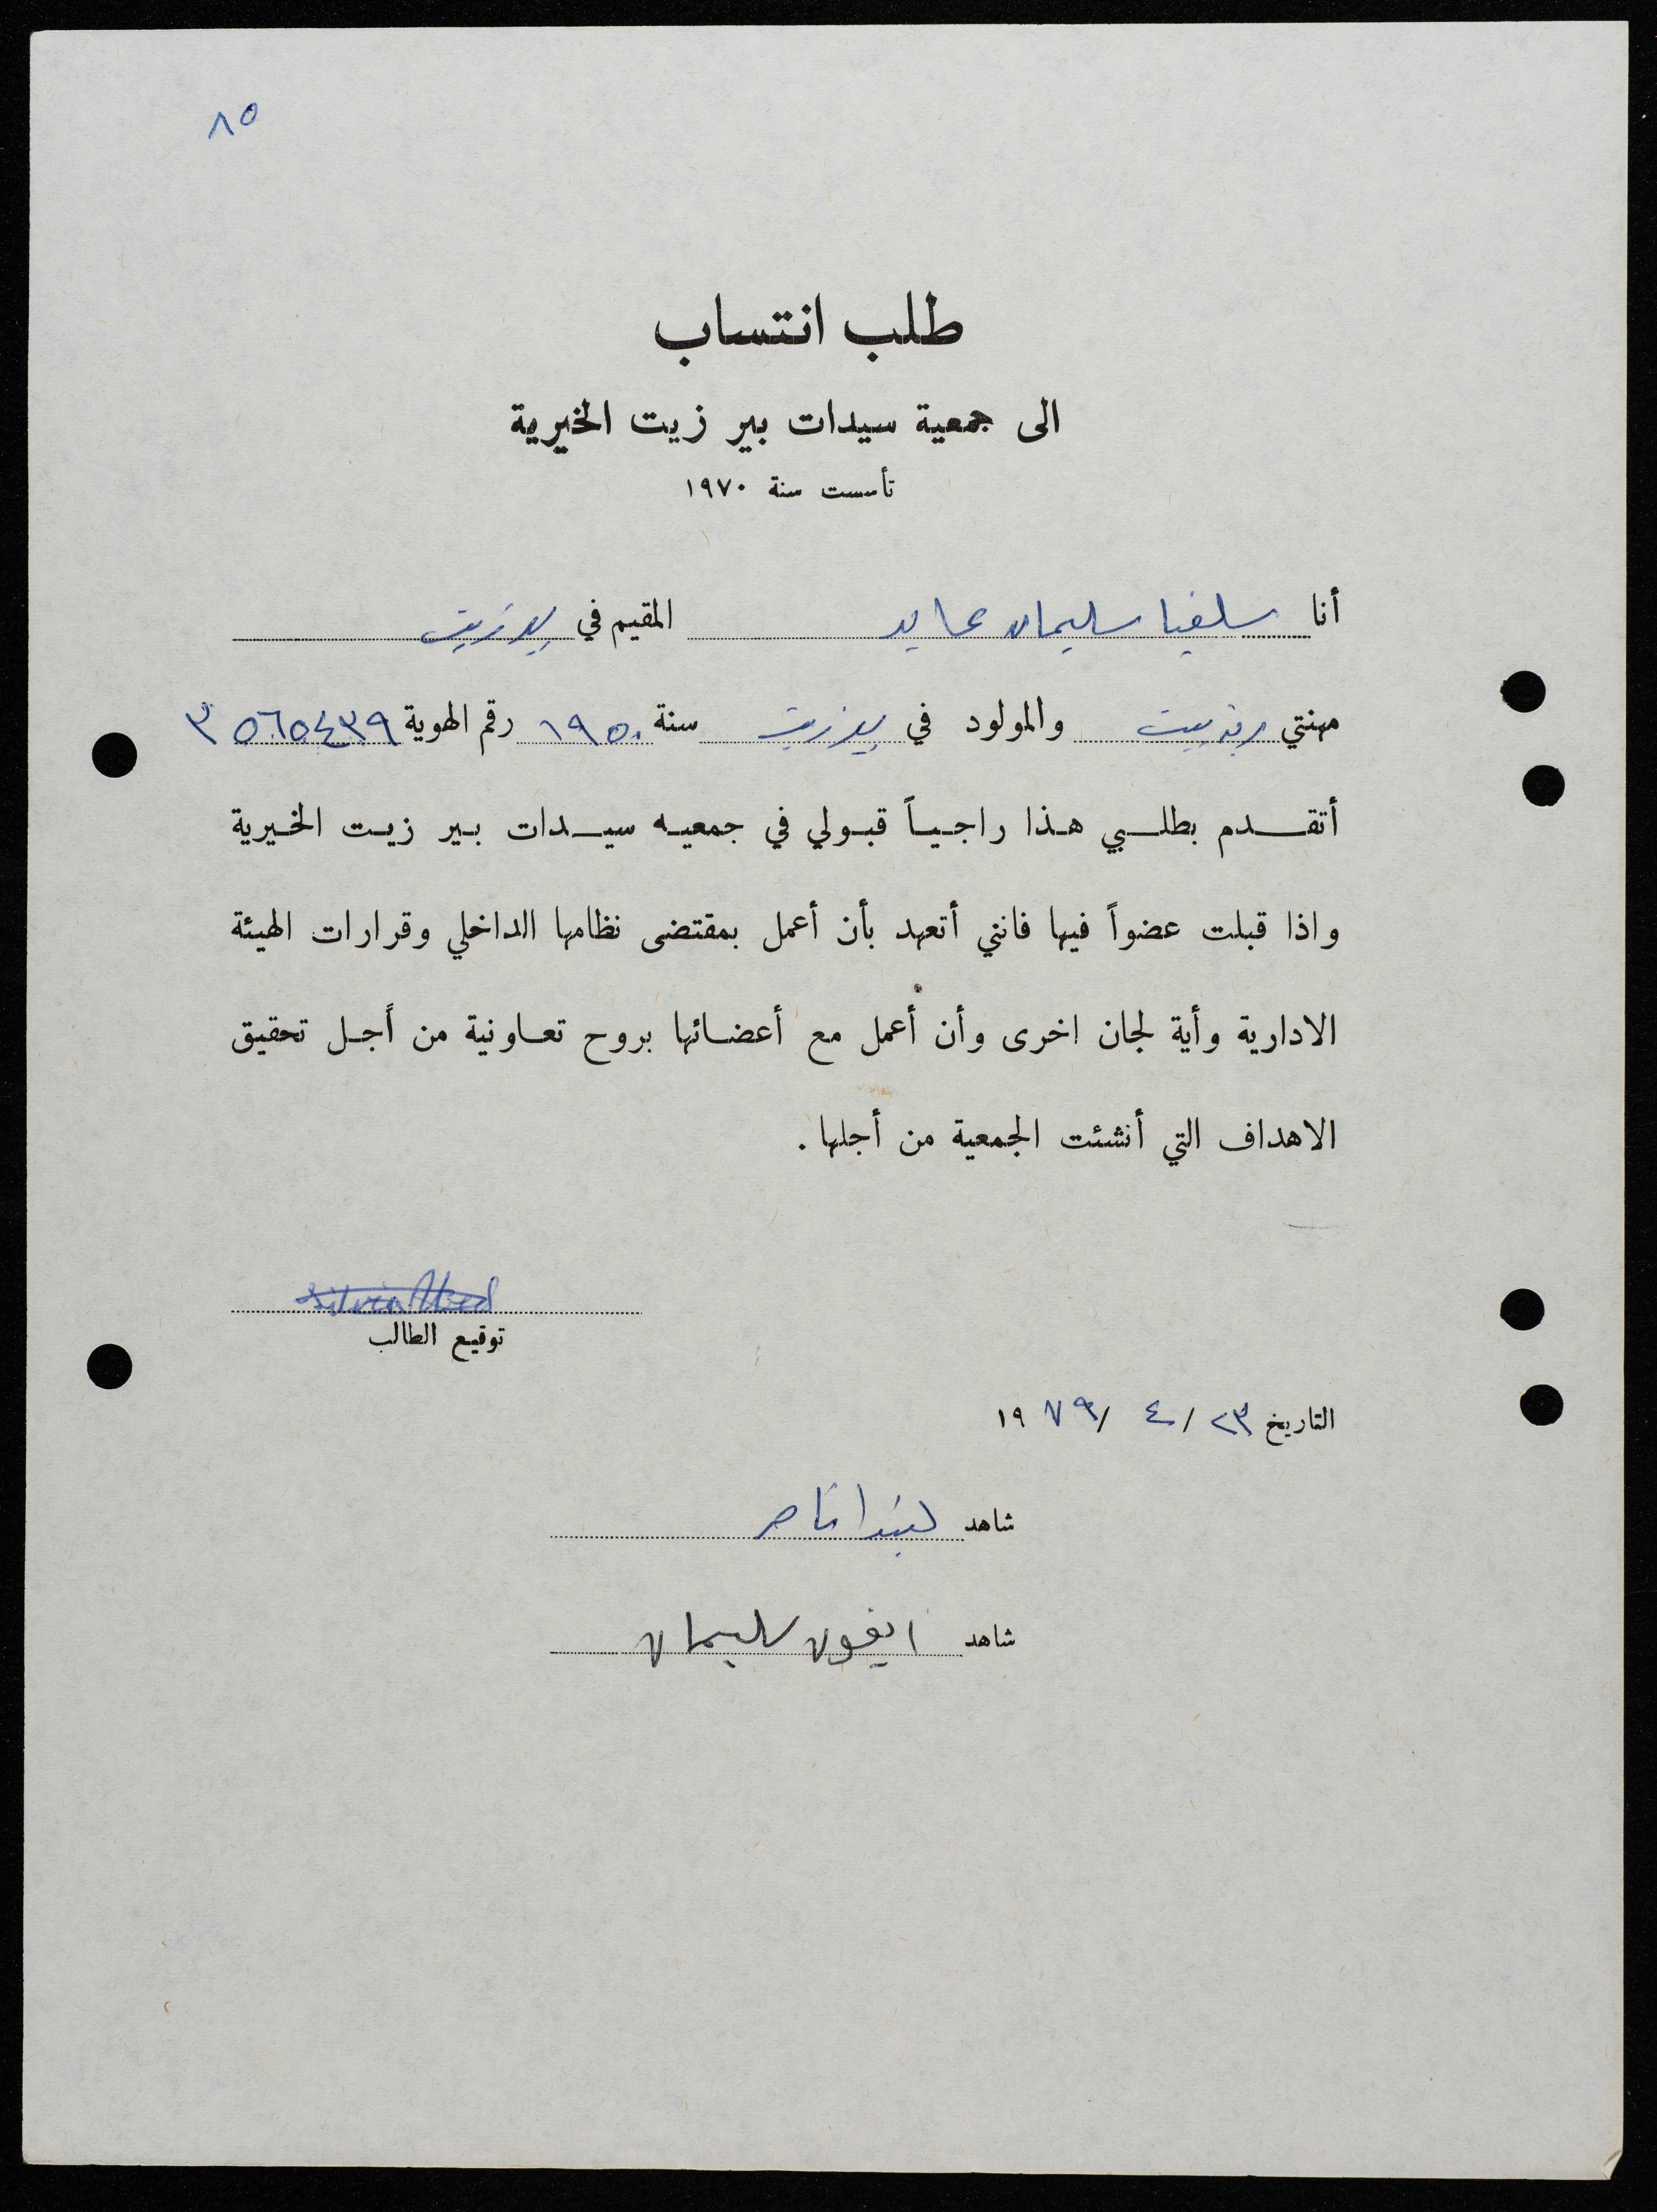 ٨٥
طلب انتساب
الى جمعية سيدات بير زيت الخيرية
تأسست سنة ١٩٧٠
أنا سلفيا سليمان عابد المقيم في بيرزيت
مهنتي ربة بيت والمولود في بيرزيت سنة ١٩٥٠ رقم الهوية ٣٥٦٥٤٣٩
أتقدم بطلبي هذا راجياً قبولي في جمعيه سيدات بير زيت الخيرية
واذا قبلت عضواً فيها فانني أتعهد بأن أعمل بمقتضى نظامها الداخلي وقرارات الهيئة
الادارية وأية لجان اخرى وأن أعمل مع أعضائها بروح تعاونية من أجل تحقيق
الاهداف التي أنشئت الجمعية من أجلها .
Silvia Abed
توقيع الطالب
التاريخ ٢٣ / ٤ / ١٩٧٩
شاهد ليندا ناصر
شاهد ايفون سليمان